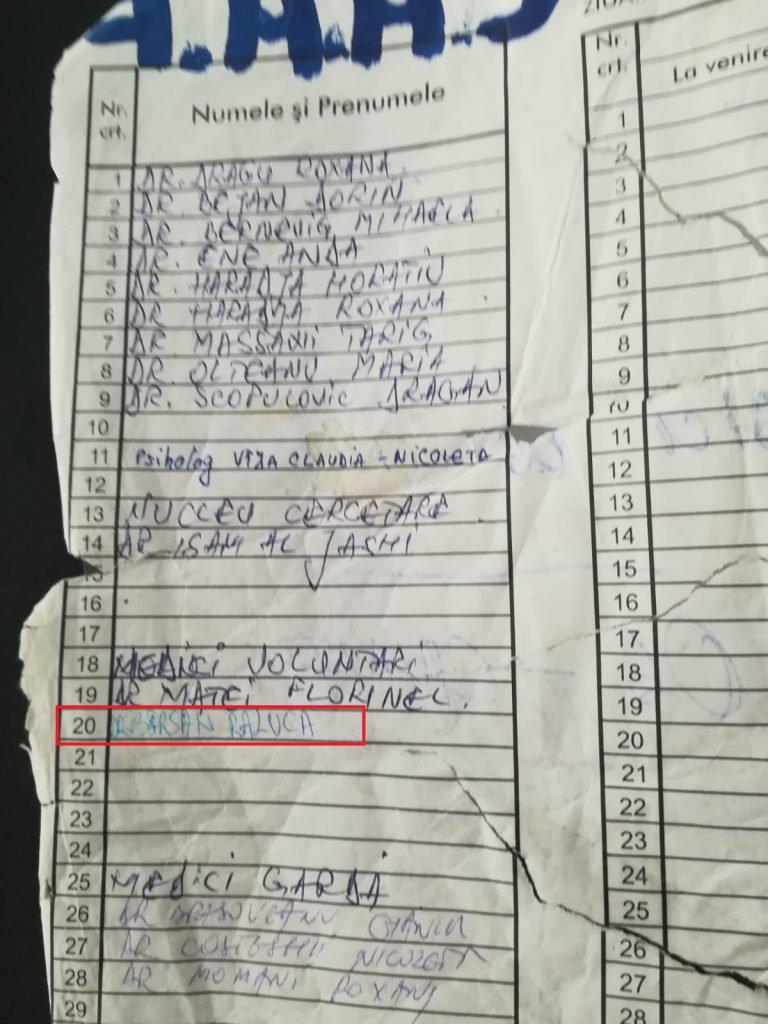 Nr. crt. Numele și Prenumele
1 DR. DRAGU ROXANA
2 DR. BEJAN SORIN
3 DR. BERNEVIG MIHAELA
4 DR. ENE ANDA
5 DR. HARADJA HORATIU
6 DR HARADJA ROXANA
7 DR MASSANII TARIG
8 DR. OLTEANU MARIA
9 DR. SCOPULOVIC DRAGAN
10
11 Psiholog VIJA CLAUDIA - NICOLETA
12
13 NUCLEU CERCETARE
14 DR ISAM AL JASHI
15
16
17
18 MEDICI VOLUNTARI
19 DR MATEI FLORINEL.
20 DR BARSAN RALUCA
21
22
23
24
25 MEDICI GARDA
26 DR BRASOVEANU
27 DR NICOLETA
28 DR MOMANI ROXANA
29
Nr. crt. La venire
1
2
3
4
5
6
7
8
9
10
11
12
13
14
15
16
17
18
19
20
21
22
23
24
25
26
27
28